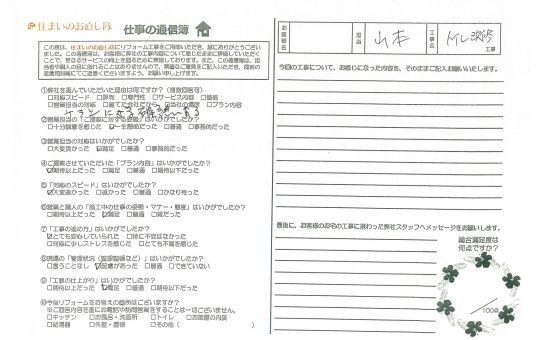 住まいのお直し隊 仕事の通信簿
この度は、住まいのお直し隊にリフォーム工事をご用命いただき、誠にありがとうござい
ました。この通信簿は、お客様に弊社の工事内容について感じたままに評価していただく
ことで、更なるサービスの向上を図るために実施しております。また、この通信簿は、担
当者や職人の目に触れることはありませんので、率直なご意見をご記入いただき、同封の
返信用封筒にてご返信くださいますよう、お願い申し上げます。
①弊社を選んでいただいた理由は何ですか?(複数回答可)
□対応スピード □評判 □専門性 □サービス内容 □価格
□営業担当の対応 □建てた会社だから □会社の信頼度 □プラン内容
②営業担当の「ご提案に対する姿勢」はいかがでしたか?
□十分誠意を感じた ☑一生懸命だった □普通 □事務的だった
③営業担当の対応はいかがでしたか?
□大変良かった ☑満足 □普通 □事務的だった
④ご提案させていただいた「プラン内容」はいかがでしたか?
☑期待以上だった □満足 □普通 □期待以下だった
⑤「対応のスピード」はいかがでしたか?
☑大変速かった □速かった □普通 □かなり待った
⑥営業と職人の「施工中の仕事の姿勢・マナー・態度」はいかがでしたか?
□期待以上だった ☑満足 □普通 □雑だった
⑦「工事の進め方」はいかがでしたか?
☑とても安心していられた □特に不安はなかった
□対応に少しストレスを感じた □とても不満を感じた
⑧現場の「管理状況(整理整頓など)」はいかがでしたか?
□言うことなし ☑配慮があった □普通 □できていない
⑨「工事の仕上がり」はいかがでしたか?
□期待以上だった ☑満足 □普通 □期待以下だった
⑩今後リフォームをお考えの箇所はございますか?
※ご回答内容を基にお電話や訪問営業をすることは一切ございません。
□キッチン □お風呂・洗面所 □トイレ □お部屋の内装
□給湯器 □外壁・屋根 □その他(
お客様名 担当 山本 工事名 トイレ改修 工事
今回の工事について、お感じになった内容を、そのままご記入お願いいたします。
最後に、お客様のお宅の工事に携わった弊社スタッフへメッセージをお願いします。
総合満足度は
何点ですか?
/100点